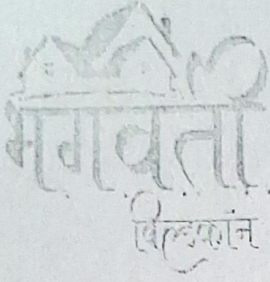 भगवती
बिल्डकॉन